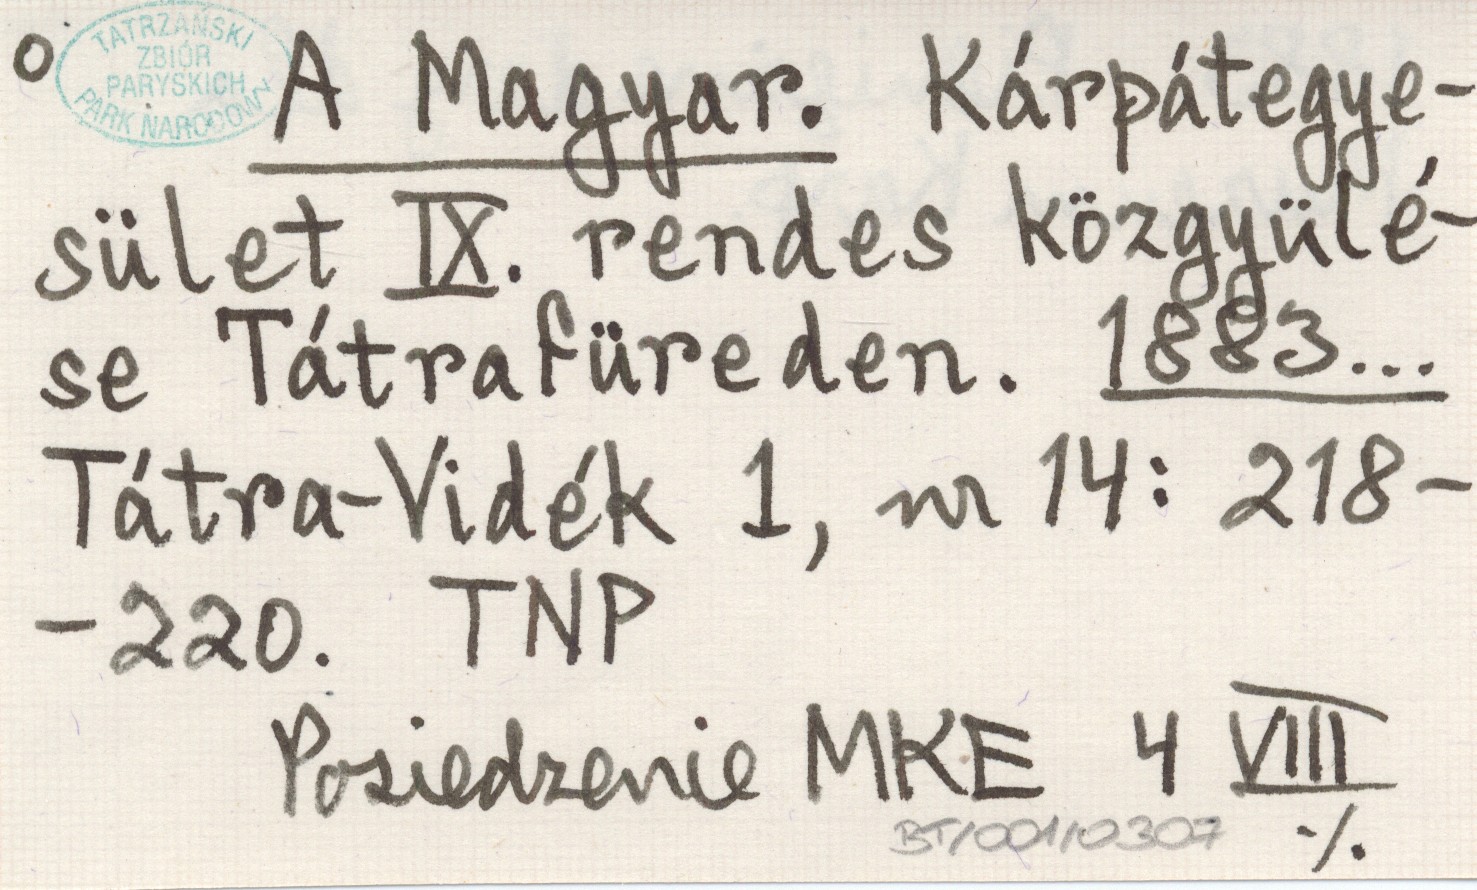 o
TATRZAŃSKI
ZBIÓR
PARYSKICH
PARK NARODOWY
A Magyar. Kárpátegye-
sület IX. rendes közgyülé-
se Tátrafüreden. 1883...
Tátra-Vidék 1, nr 14: 218-
-220. TNP
Posiedzenie MKE 4 VIII
BT/001/0307
·/.